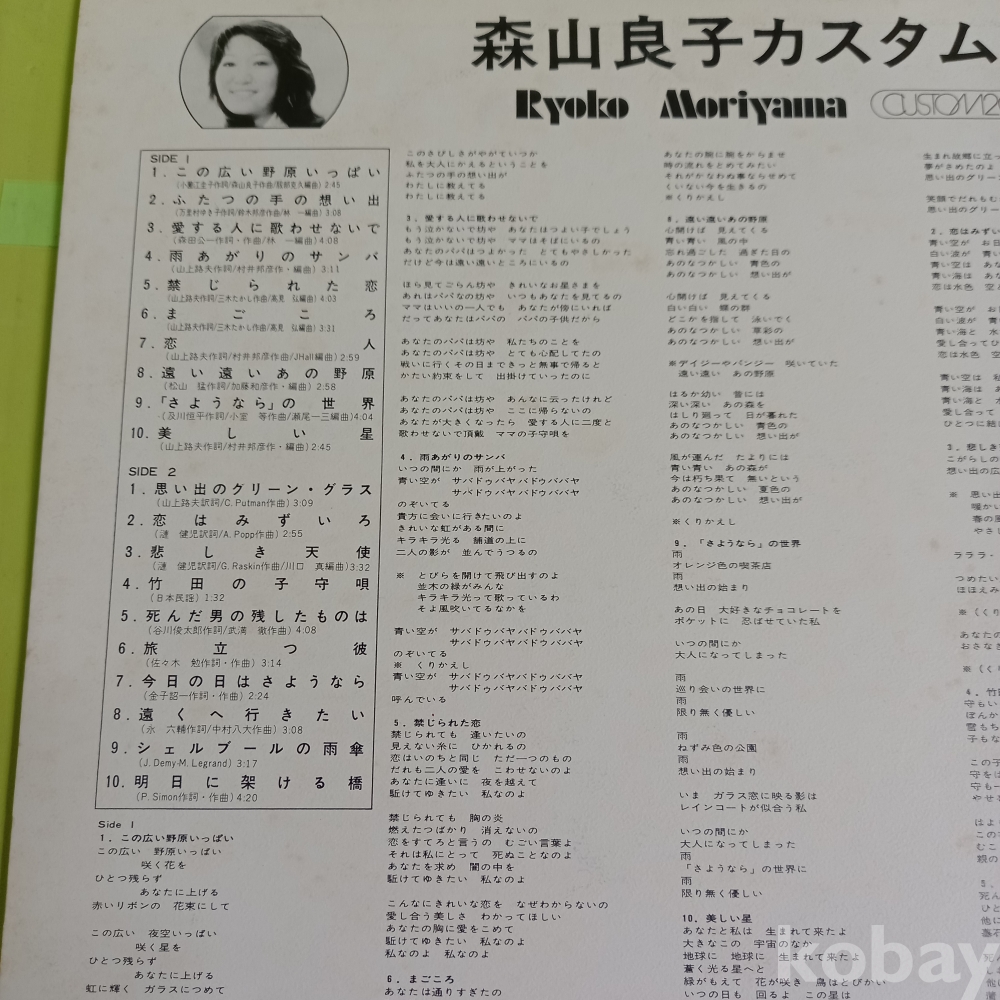 森山良子カスタム
Ryoko Moriyama CUSTOM
SIDE 1
1. この広い野原いっぱい
(小薗江圭子作詞/森山良子作曲/服部克久編曲) 2:45
2. ふたつの手の想い出
(万里村ゆき子作詞/鈴木邦彦作曲/林 一編曲) 3:08
3. 愛する人に歌わせないで
(森田公一作詞・作曲/林 一編曲) 4:08
4. 雨あがりのサンバ
(山上路夫作詞/村井邦彦作・編曲) 3:11
5. 禁じられた恋
(山上路夫作詞/三木たかし作曲/高見 弘編曲) 4:03
6. まごころ
(山上路夫作詞/三木たかし作曲/高見 弘編曲) 3:31
7. 恋人
(山上路夫作詞/村井邦彦作曲/JHall編曲) 2:59
8. 遠い遠いあの野原
(松山 猛作詞/加藤和彦作・編曲) 2:58
9. 「さようなら」の世界
(及川恒平作詞/小室 等作曲/瀬尾一三編曲) 4:04
10. 美しい星
(山上路夫作詞/村井邦彦作・編曲) 2:45
SIDE 2
1. 思い出のグリーン・グラス
(山上路夫訳詞/C. Putman作曲) 3:09
2. 恋はみずいろ
(漣 健児訳詞/A. Popp作曲) 2:55
3. 悲しき天使
(漣 健児訳詞/G. Raskin作曲/川口 真編曲) 3:32
4. 竹田の子守唄
(日本民謡) 1:32
5. 死んだ男の残したものは
(谷川俊太郎作詞/武満 徹作曲) 4:08
6. 旅立つ彼
(佐々木 勉作詞・作曲) 3:14
7. 今日の日はさようなら
(金子詔一作詞・作曲) 2:24
8. 遠くへ行きたい
(永 六輔作詞/中村八大作曲) 3:08
9. シェルブールの雨傘
(J. Demy-M. Legrand) 3:17
10. 明日に架ける橋
(P. Simon作詞・作曲) 4:20
Side 1
1. この広い野原いっぱい
この広い 野原いっぱい
咲く花を
ひとつ残らず
あなたに上げる
赤いリボンの 花束にして
この広い 夜空いっぱい
咲く星を
ひとつ残らず
あなたに上げる
虹に輝く ガラスにつめて
このさびしさがやがていつか
私を大人にかえるということを
ふたつの手の想い出が
わたしに教えてる
わたしに教えてる
3. 愛する人に歌わせないで
もう泣かないで坊や あなたはつよい子でしょう
もう泣かないで坊や ママはそばにいるの
あなたのパパはつよかった とてもやさしかった
だけど今は遠い遠いところにいるの
ほら見てごらん坊や きれいなお星さまを
あれはパパなの坊や いつもあなたを見てるの
ママはいいの一人でも あなたが傍にいれば
だってあなたはパパの パパの子供だから
あなたのパパは坊や 私たちのことを
あなたのパパは坊や とても心配してたの
戦いに行くその日まできっと無事で帰ると
かたい約束をして 出掛けていったのに
あなたのパパは坊や あんなに云ったけれど
あなたのパパは坊や ここに帰らないの
あなたが大きくなったら 愛する人に二度と
歌わせないで頂戴 ママの子守唄を
4. 雨あがりのサンバ
いつの間にか 雨が上がった
青い空が サバドゥバヤバドゥバヤ
サバドゥバヤバドゥババヤ
のぞいてる
貴方に会いに行きたいのよ
きれいな虹がある間に
キラキラ光る 舗道の上に
二人の影が 並んでうつるの
※ とびらを開けて飛び出すのよ
並木の緑がみんな
キラキラ光って歌っているわ
そよ風吹いてるなかを
青い空が サバドゥバヤバドゥババヤ
サバドゥバヤバドゥババヤ
のぞいてる
※ くりかえし
青い空が サバドゥバヤバドゥババヤ
サバドゥバヤバドゥババヤ
呼んでいる
5. 禁じられた恋
禁じられても 逢いたいの
見えない糸に ひかれるの
恋はいのちと同じ ただ一つのもの
だれも二人の愛を こわせないのよ
あなたに逢いに 夜を越えて
駈けてゆきたい 私なのよ
禁じられても 胸の炎
燃えたつばかり 消えないの
恋をすてろと言うの むごい言葉よ
それは私にとって 死ぬことなのよ
あなたを求め 闇の中を
駈けてゆきたい 私なのよ
こんなにきれいな恋を なぜわからないの
愛し合う美しさ わかってほしい
あなたの胸に愛をこめて
駈けてゆきたい 私なのよ
私なのよ 私なのよ
6. まごころ
あなたは通りすぎたの
あなたの腕に腕をからませ
時の流れをとめてみたい
それがかなわぬ事ならせめて
くいない今を生きるの
※くりかえし
8. 遠い遠いあの野原
心開けば 見えてくる
青い青い 風の中
忘れ過ごした 過ぎた日の
あのなつかしい 青色の
あのなつかしい 想い出が
心開けば 見えてくる
白い白い 蝶の群
どこかを指して 泳いでく
あのなつかしい 草彩の
あのなつかしい 想い出が
※デイジーやパンジー 咲いていた
遠い遠い あの野原
はるか幼い 昔には
深い深い あの森を
はしり廻って 日が暮れた
あのなつかしい 青色の
あのなつかしい 想い出が
風が運んだ たよりには
青い青い あの森が
今は朽ち果て 無いという
あのなつかしい 夏色の
あのなつかしい 想い出が
※くりかえし
9. 「さようなら」の世界
雨
オレンジ色の喫茶店
雨
想い出の始まり
あの日 大好きなチョコレートを
ポケットに 忍ばせていた私
いつの間にか
大人になってしまった
雨
巡り会いの世界に
雨
限り無く優しい
雨
ねずみ色の公園
雨
想い出の始まり
いま ガラス窓に映る影は
レインコートが似合う私
いつの間にか
大人になってしまった
雨
「さようなら」の世界に
雨
限り無く優しい
10. 美しい星
あなたと私は 生まれて来たよ
大きなこの 宇宙のなか
地球に 地球に 生まれて来たよ
蒼く光る星へと
緑がもえて 花が咲き 鳥はとびかい
いつの日も 回るよ この星は
生まれ故郷に立っ
夢がさめたのよ
思い出のグリー
笑顔でだれもむ
思い出のグリー
2. 恋はみずい
青い空が お日
白い波が 青い
青い空は あな
青い海は あな
恋は水色 空と
青い空が お日
白い波が 青い
青い海と 水
愛し合ってひ
恋は水色 空
青い空は 私
青い海は あ
青い海と
愛し合って
ひとつに結
3. 悲しき
こがらしの
想い出の広
※ 思い出
暖かい
春の風
やさし
ラララ・
つめたい
ほほえみ
※(くり
あなたの
おさなき
※(く
4. 竹田
守もい
ぼんか
雪もち
子もな
この子
守をは
守も一
やせ
はよ
この
むこ
親の
5.
死ん
ひと
他に
墓石
kobay